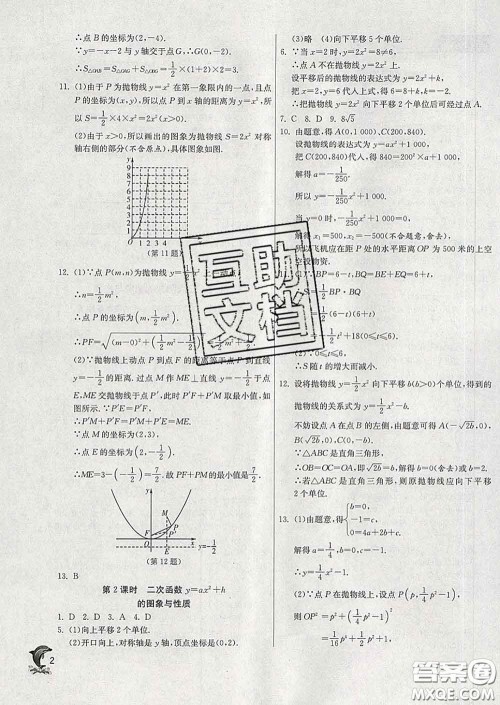 ∴点B的坐标为(2,-4).
∵y=-x-2与y轴交于点G,∴G(0,-2).
11. (1)∵点P为抛物线y=x²在第一象限内的一点,且点
P的坐标为(x,y),所以点P到x轴的距离为x²,所
以S=1/2×4×x²=2x²(x>0).
(2)由于x>0,所以画出的图象为抛物线S=2x²对称
轴右侧的部分(不含原点),具体图象如图.
(第11题)
12. (1)∵点P(m,n)为抛物线y=1/2x²上
∴n=1/2m²,
∴点P的坐标为(m,1/2m²),
(2)∵抛物线上动点P到点F的距离等于点P到直线
y=-1/2的距离. 过点M作ME⊥直线y=-1/2于点
E,ME交抛物线于点P',此时P'F+P'M取最小值,如
图所示. ∵P'E=P'F,
∴P'F+P'M=P'M+P'E=ME.
∵点M的坐标为(2,3).
∴点E的坐标为(2,-1/2),
∴ME=3-(-1/2)=7/2. 故PF+PM的最小值是7/2.
y=-1/2
(第12题)
13. B
第2课时 二次函数y=ax²+h
的图象与性质
1. D 2. D 3. A 4. D
5. (1)向上平移2个单位.
(2)开口向上,对称轴是y轴,顶点坐标是(0,2).
2
(3)略 (4)向下平移5个单位.
6. ∵当x=2时,y=2x²=8≠6,
∴点A不在抛物线y=2x²上.
设平移后的抛物线的表达式为y=2x²+k,
把x=2,y=6代入上式,得k=-2,
∴把抛物线y=2x²向下平移2个单位后可经过点A.
7. C 8. D 9. 8√3
10. 由题意,得A(0,1 000),C(200,840).
设抛物线的表达式为y=ax²+1 000,
把C(200,840)代入,得840=200²×a+1 000,
解得a=-1/250.
所以y=-1/250x²+1 000.
当y=0时,-1/250x²+1 000=0,
解得x₁=500,x₂=-500(不合题意,舍去).
所以飞机应在距P处的水平距离OP为500米的上空
空投物资.
∵PB=6-t,BE+EQ=6+t,
(2)∵0≤t≤6,
∴S随t的增大而减小.
12. 设将抛物线y=1/2x²向下平移b(b>0)个单位,得到的
抛物线的关系式为y=1/2x²-b.
不妨设点A在点B的左侧,由题意可得A(-√2b,0),
B(√2b,0),C(0,-b).
∵△ABC是直角三角形,
∴OB=OC=OA,即√2b=b,解得b=0(舍去)或b=2.
∴若△ABC是直角三角形,则原抛物线应向下平移
2个单位.
13. (1)由题意,得{b=0, -1=c, 0=4a+2b+c.
解得{a=1/4, b=0, c=-1.
(2)∵点P在抛物线上,设点P(p,1/4p²-1),
则OP²=p²+(1/4p²-1)²
=1/16p⁴+1/2p²+1
互助文档
答案圈
MXQE.COM